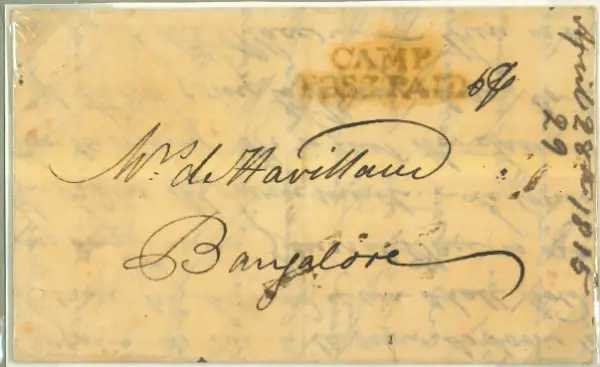 CAMP
POST PAID
Mrs. de Havilland
Bangalore
April 28th 1815
29